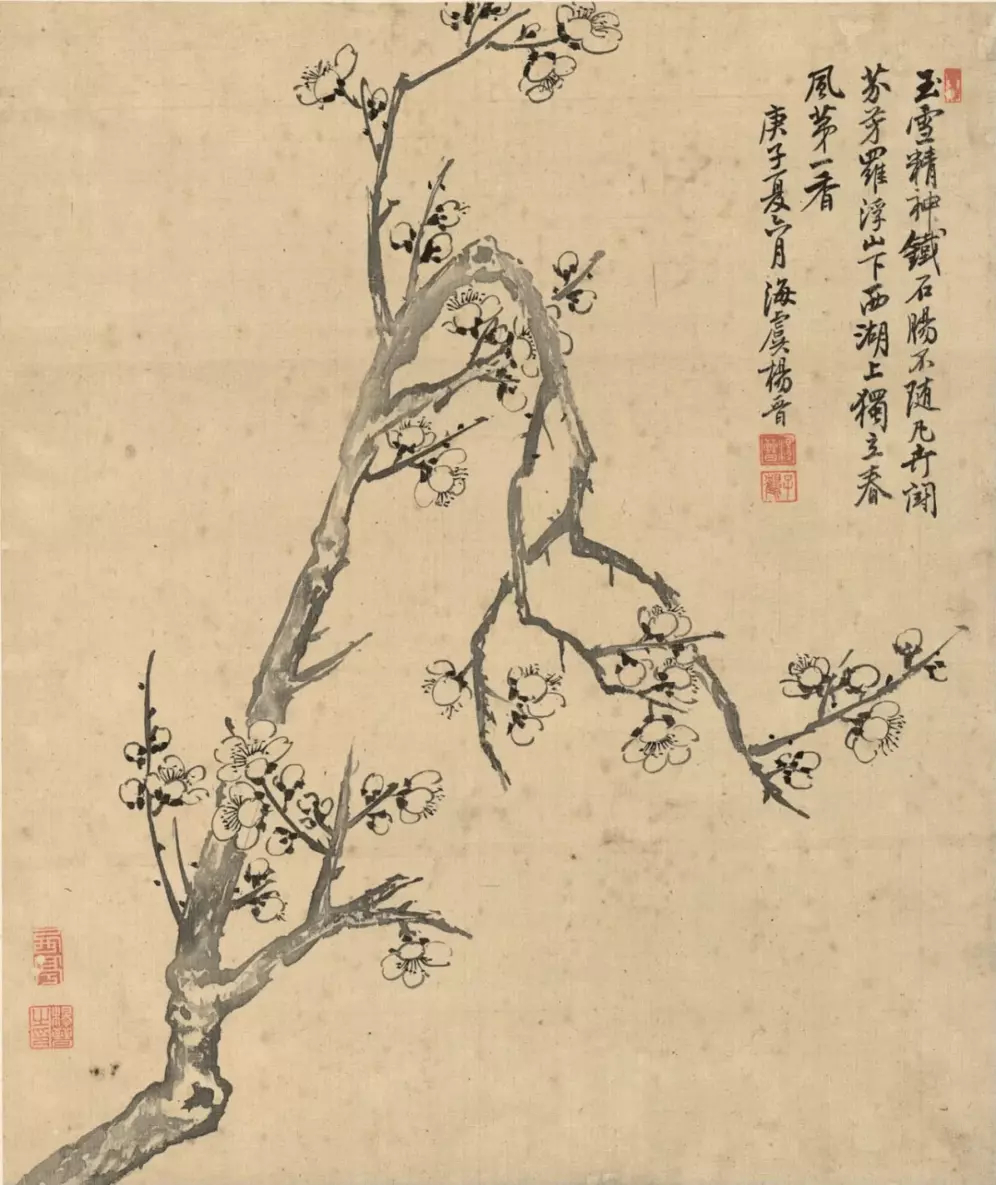 玉雪精神鐵石腸不隨凡卉鬪
芬芳羅浮山下西湖上獨立春
風苐一香
庚子夏六月海虞楊晉